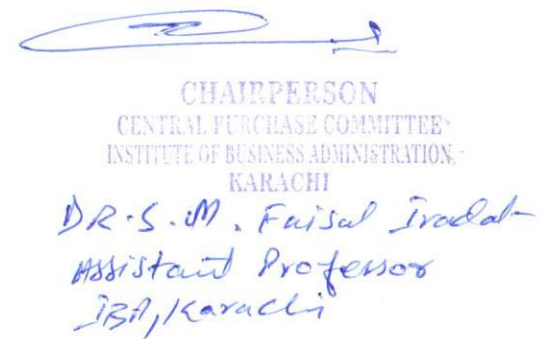 CHAIRPERSON
CENTRAL PURCHASE COMMITTEE
INSTITUTE OF BUSINESS ADMINISTRATION,
KARACHI
DR.S.M. Faisal Iradat
Assistant Professor
IBA, Karachi